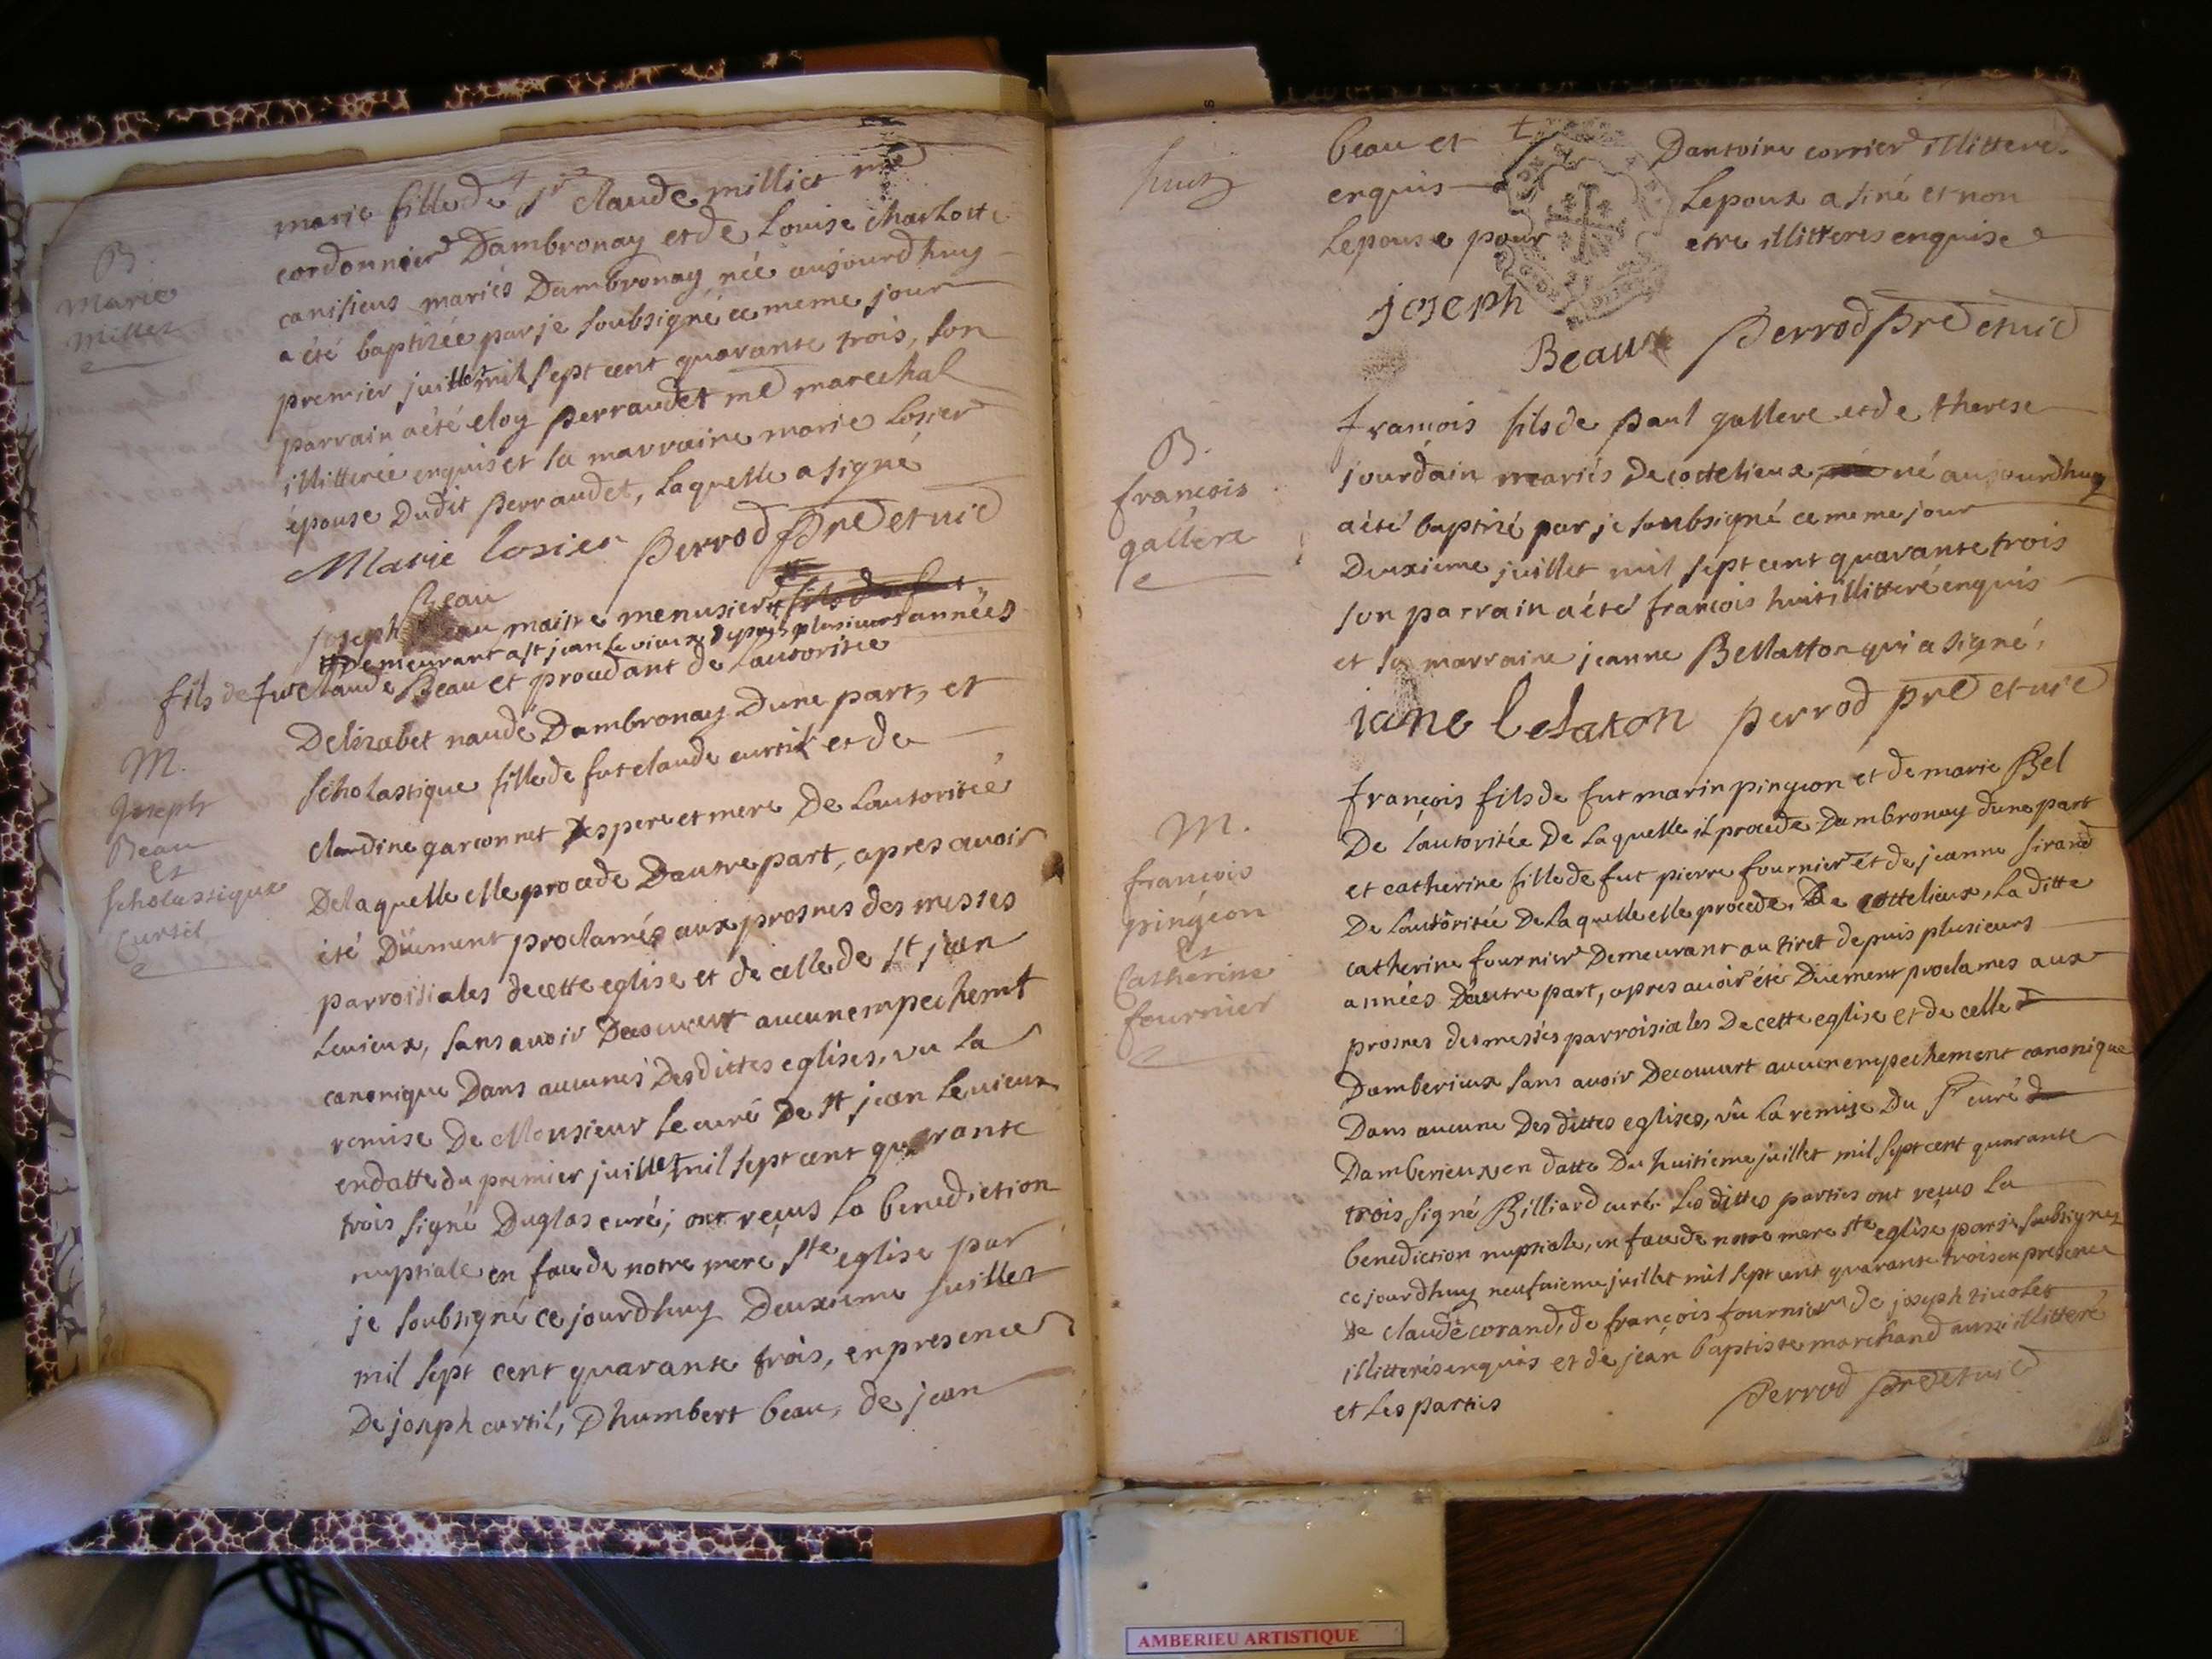 B.
Marie
Millet
marie fille de Sr Claude milliet me
cordonnier Dambronay et de Louise charlotte
canisieus mariés Dambronay née aujourdhuy
a été baptizée par je soubsigné ce meme jour
premier juillet mil sept cent quarante trois, son
parrain a été eloy perraudet me marechal
illitterée enquis et la marraine marie Losier
épouse Dudit perraudet, laquelle a signé
Marie losier perrod pre et vic
M.
Joseph
Beau
et
scholastique
Curtil
Beau
joseph Beau maitre menusier
Demeurant a st jean le vieux depuis plusieurs années
fils de fut claude Beau et procedant de Lautoritée
Delizabet naudé Dambronay Dune part, et
scholastique fille de fut claude curtil et de
claudine garconnet ses pere et mere De Lautoritée
De laquelle elle procede Dautre part, apres avoir
été Düement proclamés aux prosnes des messes
parroisiales de cette eglise et de celle de st jean
Levieux, sans avoir Decouvert aucun empechemt
canonique Dans aucunes Des dittes eglises, vu la
remise De Monsieur Le curé De st jean Levieux
en datte du premier juillet mil sept cent quarante
trois signé Duglas curé; ont reçus la benediction
nuptiale en face de notre mere ste eglise par
je soubsigné ce jourdhuy Deuxieme juillet
mil sept cent quarante trois, en presence
De joseph curtil, Dhumbert beau, de jean
huit
beau et Dantoine corrier illitteré
enquis Lepoux a siné et non
Lepouse pour etre illitteres enquise
joseph
Beaux perrod pre et vic
B.
francois
gallere
francois fils de paul gallere et de therese
jourdain mariés De cottelieux né aujourdhuy
a été baptizé par je soubsigné ce meme jour
Deuxieme juillet mil sept cent quarante trois
son parrain a été francois huit illitteré enquis
et sa marraine jeanne Bellatton qui a signé,
jane belaton perrod pre et vic
M.
francois
pingeon
et
Catherine
fournier
francois fils de fut marin pingeon et de marie Bel
De l'autoritée De laquelle il procede Dambronay dune part
et catherine fille de fut pierre fournier et de jeanne sirand
De Lautoritée De laquelle elle procede, De cottelieux, la ditte
catherine fournier Demeurant au tiret depuis plusieurs
années Dautre part, apres avoir été Düement proclames aux
prosnes des messes parroisiales De cette eglise et de celle
Damberieux sans avoir Decouvert aucun empechement canonique
Dans aucune Des dittes eglises, vû la remise Du Sr curé
Damberieux en datte Du huitieme juillet mil sept cent quarante
trois signé Billiard curé. Les dittes parties ont reçus la
benediction nuptiale, en face de notre mere ste eglise par je soubsigné
ce jourdhuy neufvieme juillet mil sept cent quarante trois en presence
De claude corand, de françois fournier de joseph tinolet
illitterés enquis et de jean baptiste marchand aussi illitteré
et Les parties perrod pre et vic
AMBERIEU ARTISTIQUE